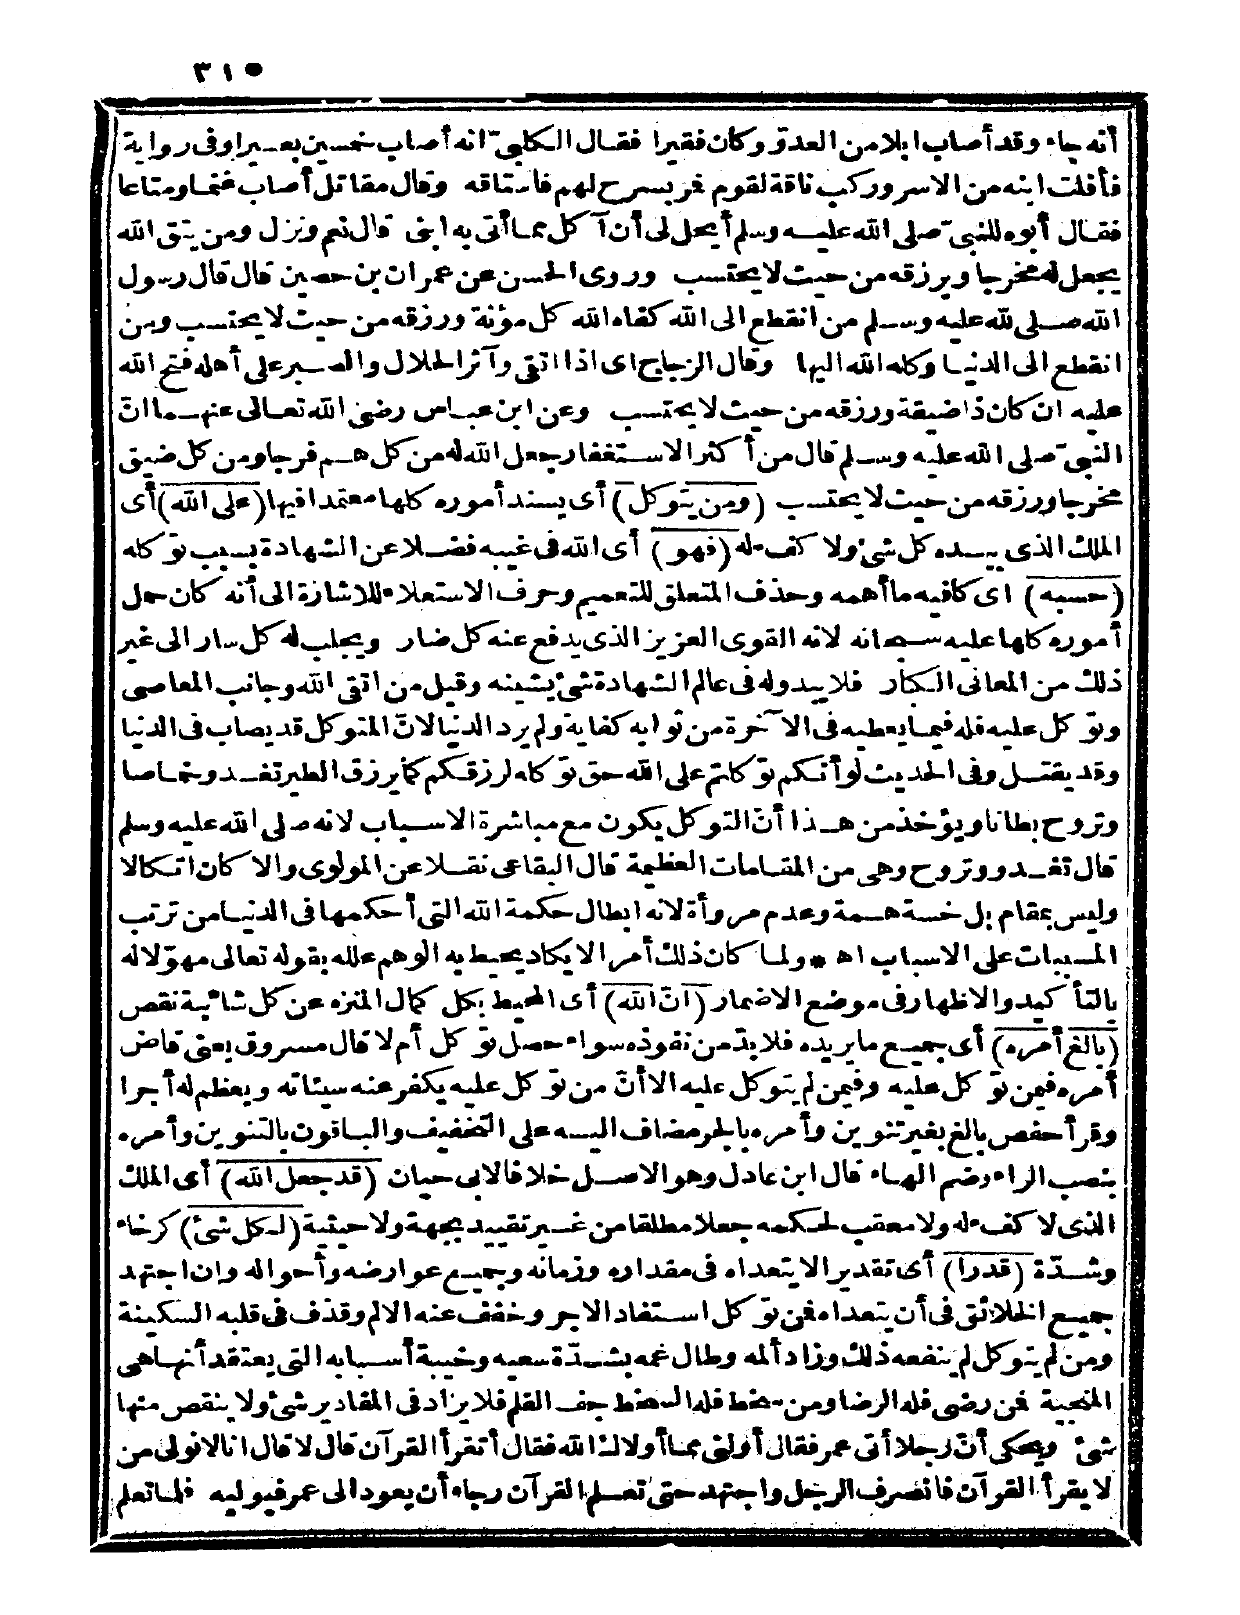 ٣١٥
أنه جاء وقد أصاب ابلا من العدوّ وكان فقيرا فقال الكلبىّ انه أصاب خمسين بعيرا وفى رواية
فأفلت ابنه من الاسر وركب ناقة لقوم فمر بسرح لهم فاستاقه وقال مقاتل أصاب غنما ومتاعا
فقال أبوه للنبىّ صلى الله عليه وسلم أيحل لى أن آكل مما أتى به ابنى قال نعم ونزل ومن يتق الله
يجعل له مخرجا ويرزقه من حيث لا يحتسب وروى الحسن عن عمران بن حصين قال قال رسول
الله صلى لله عليه وسلم من انقطع الى الله كفاه الله كل مؤنة ورزقه من حيث لا يحتسب ومن
انقطع الى الدنيا وكله الله اليها وقال الزجاج اى اذا اتقى وآثر الحلال والصبر على أهله فتح الله
عليه ان كان ذا ضيقة ورزقه من حيث لا يحتسب وعن ابن عباس رضى الله تعالى عنهما انّ
النبىّ صلى الله عليه وسلم قال من أكثر الاستغفار جعل الله له من كل هم فرجا ومن كل ضيق
مخرجا ورزقه من حيث لا يحتسب (ومن يتوكل) أى يسند أموره كلها معتمدا فيها (على الله) أى
الملك الذى بيده كل شئ ولا كفء له (فهو) أى الله فى غيبه فضلا عن الشهادة بسبب توكله
(حسبه) اى كافيه ما أهمه وحذف المتعلق للتعميم وحرف الاستعلاء للاشارة الى أنه كان حمل
أموره كلها عليه سبحانه لانه القوى العزيز الذى يدفع عنه كل ضار ويجلب له كل سار الى غير
ذلك من المعانى الكبار فلا يبدو له فى عالم الشهادة شئ يشينه وقيل من اتقى الله وجانب المعاصى
وتوكل عليه فله فيما يعطيه فى الآخرة من ثوابه كفاية ولم يرد الدنيا لانّ المتوكل قد يصاب فى الدنيا
وقد يقتل وفى الحديث لو أنكم توكلتم على الله حق توكله لرزقكم كما يرزق الطير تغدو خماصا
وتروح بطانا ويؤخذ من هذا أنّ التوكل يكون مع مباشرة الاسباب لانه صلى الله عليه وسلم
قال تغدو وتروح وهى من المقامات العظيمة قال البقاعى نقلا عن المولوى والا كان اتكالا
وليس بمقام بل خسة همة وعدم مروأة لانه ابطال حكمة الله التى أحكمها فى الدنيا من ترتب
المسببات على الاسباب اه * ولما كان ذلك أمرا لا يكاد يحيط به الوهم علله بقوله تعالى مهوّلا له
بالتأكيد والاظهار فى موضع الاضمار (انّ الله) أى المحيط بكل كمال المنزه عن كل شائبة نقص
(بالغ أمره) أى جميع ما يريده فلا بدّ من نفوذه سواء حصل توكل أم لا قال مسروق يعنى قاض
أمره فيمن توكل عليه وفيمن لم يتوكل عليه الا أنّ من توكل عليه يكفر عنه سيئاته ويعظم له أجرا
وقرأ حفص بالغ بغير تنوين وأمره بالجر مضاف اليه على التخفيف والباقون بالتنوين وأمره
بنصب الراء وضم الهاء قال ابن عادل وهو الاصل خلافا لابى حيان (قد جعل الله) أى الملك
الذى لا كفء له ولا معقب لحكمه جعلا مطلقا من غير تقييد بجهة ولا حيثية (لكل شئ) كرخاء
وشدّة (قدرا) أى تقديرا لا يتعداه فى مقداره وزمانه وجميع عوارضه وأحواله وان اجتهد
جميع الخلائق فى أن يتعداه فمن توكل استفاد الاجر وخفف عنه الالم وقذف فى قلبه السكينة
ومن لم يتوكل لم ينفعه ذلك وزاد ألمه وطال غمه بشدّة سعيه وخيبة أسبابه التى يعتقد أنها هى
المنجية فمن رضى فله الرضا ومن سخط فله السخط جف القلم فلا يزاد فى المقادير شئ ولا ينقص منها
شئ ويحكى أنّ رجلا أتى عمر فقال أولنى مما أولاك الله فقال أتقرأ القرآن قال لا قال انا لا نولى من
لا يقرأ القرآن فانصرف الرجل واجتهد حتى تعلم القرآن رجاء أن يعود الى عمر فيوليه فلما تعلم